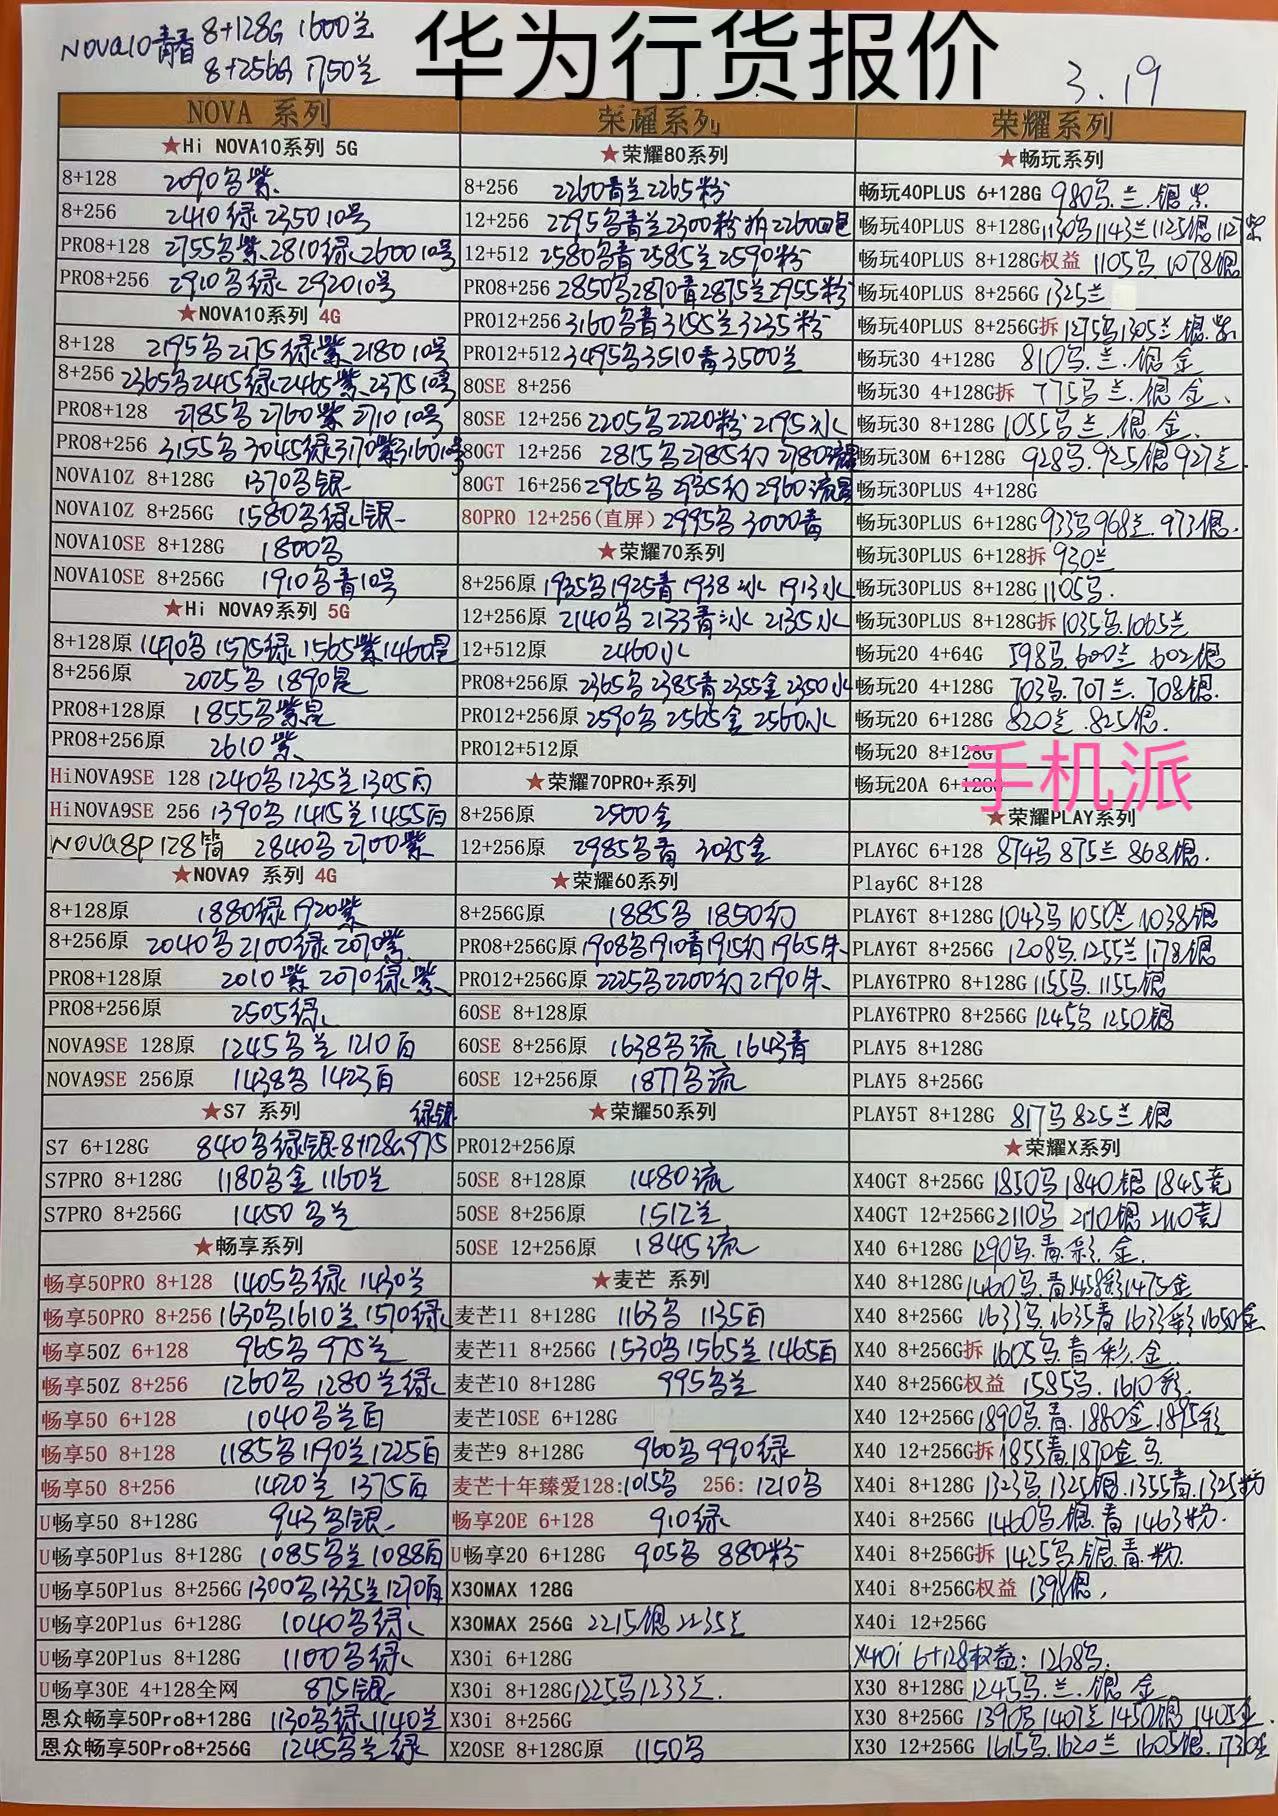 华为行货报价
NOVA10青春 8+128G 1600兰
8+256G 1750兰
3.19
NOVA 系列
★Hi NOVA10系列 5G
8+128 2090乌紫
8+256 2410绿 2350 10号
PRO8+128 2755乌紫 2810绿 2600 10号
PRO8+256 2910乌绿 2920 10号
★NOVA10系列 4G
8+128 2195乌 2175绿紫 2180 10号
8+256 2365乌 2445绿 2465紫 2375 10号
PRO8+128 2785乌 2760紫 2710 10号
PRO8+256 3155乌 3045绿 3170紫 3160 10号
NOVA10Z 8+128G 1370乌银
NOVA10Z 8+256G 1580乌绿银
NOVA10SE 8+128G 1800乌
NOVA10SE 8+256G 1910乌青10号
★Hi NOVA9系列 5G
8+128原 1490乌 1575绿 1565紫 1460昆
8+256原 2025乌 1890昆
PRO8+128原 1855乌紫昆
PRO8+256原 2610紫
HiNOVA9SE 128 1240乌 1235兰 1305百
HiNOVA9SE 256 1390乌 1415兰 1455百
NOVA8P 128简 2840乌 2700紫
★NOVA9 系列 4G
8+128原 1880绿 1920紫
8+256原 2040乌 2100绿 2090紫
PRO8+128原 2010紫 2070绿紫
PRO8+256原 2505绿
NOVA9SE 128原 1245乌兰 1210百
NOVA9SE 256原 1438乌 1423百
★S7 系列 绿银
S7 6+128G 840乌绿银 8+128G 975
S7PRO 8+128G 1180乌金 1160兰
S7PRO 8+256G 1450乌兰
★畅享系列
畅享50PRO 8+128 1405乌绿 1430兰
畅享50PRO 8+256 1630乌 1610兰 1570绿
畅享50Z 6+128 965乌 975兰
畅享50Z 8+256 1260乌 1280兰绿
畅享50 6+128 1040乌兰百
畅享50 8+128 1185乌 1190兰 1225百
畅享50 8+256 1420兰 1375百
U畅享50 8+128G 943乌银
U畅享50Plus 8+128G 1085乌兰 1088百
U畅享50Plus 8+256G 1300乌 1335兰 1270百
U畅享20Plus 6+128G 1040乌绿
U畅享20Plus 8+128G 1100乌绿
U畅享30E 4+128全网 875银
恩众畅享50Pro8+128G 1130乌绿 1140兰
恩众畅享50Pro8+256G 1245乌兰绿
荣耀系列
★荣耀80系列
8+256 2260青兰 2265粉
12+256 2295乌青兰 2300粉 拆2260四色
12+512 2580乌青 2585兰 2590粉
PRO8+256 2850乌 2870青 2875兰 2955粉
PRO12+256 3160乌青 3155兰 3235粉
PRO12+512 3495乌 3510青 3500兰
80SE 8+256
80SE 12+256 2205乌 2220粉 2195冰
80GT 12+256 2815乌 2785幻 2780流星
80GT 16+256 2965乌 2935幻 2960流星
80PRO 12+256(直屏) 2995乌 3000青
★荣耀70系列
8+256原 1935乌 1925青 1938冰 1913水
12+256原 2140乌 2133青冰 2135水
12+512原 2460水
PRO8+256原 2365乌 2385青 2355金 2350水
PRO12+256原 2590乌 2565金 2560水
PRO12+512原
★荣耀70PRO+系列
8+256原 2500金
12+256原 2985乌青 3035金
★荣耀60系列
8+256G原 1885乌 1850幻
PRO8+256G原 1908乌 1910青 1915幻 1965朱
PRO12+256G原 2225乌 2200幻 2190朱
60SE 8+128原
60SE 8+256原 1638乌流 1643青
60SE 12+256原 1877乌流
★荣耀50系列
PRO12+256原
50SE 8+128原 1480流
50SE 8+256原 1512兰
50SE 12+256原 1845流
★麦芒 系列
麦芒11 8+128G 1163乌 1135百
麦芒11 8+256G 1530乌 1565兰 1465百
麦芒10 8+128G 995乌兰
麦芒10SE 6+128G
麦芒9 8+128G 960乌 990绿
麦芒十年臻爱128:1015乌 256: 1210乌
畅享20E 6+128 910绿
U畅享20 6+128G 905乌 880粉
X30MAX 128G
X30MAX 256G 2215银 2235兰
X30i 6+128G
X30i 8+128G 1225乌 1233兰
X30i 8+256G
X20SE 8+128G原 1150乌
荣耀系列
★畅玩系列
畅玩40PLUS 6+128G 980乌.兰.银.紫
畅玩40PLUS 8+128G 1130乌 1143兰 1125银 1127紫
畅玩40PLUS 8+128G权益 1105乌 1078银
畅玩40PLUS 8+256G 1325兰
畅玩40PLUS 8+256G拆 1275乌 1305兰.银.紫
畅玩30 4+128G 810乌.兰.银 金
畅玩30 4+128G拆 775乌 兰.银 金
畅玩30 8+128G 1055乌 兰.银.金
畅玩30M 6+128G 928乌.925银 927兰
畅玩30PLUS 4+128G
畅玩30PLUS 6+128G 933乌 968兰.973银
畅玩30PLUS 6+128拆 930兰
畅玩30PLUS 8+128G 1105乌
畅玩30PLUS 8+128G拆 1035乌.1065兰
畅玩20 4+64G 598乌.600兰 602银
畅玩20 4+128G 703乌.707兰.708银
畅玩20 6+128G 820兰.825银
畅玩20 8+128G
畅玩20A 6+128G
手机派
★荣耀PLAY系列
PLAY6C 6+128 874乌 875兰 868银
Play6C 8+128
PLAY6T 8+128G 1043乌 1050兰.1038银
PLAY6T 8+256G 1208乌.1255兰 1178银
PLAY6TPRO 8+128G 1155乌.1155银
PLAY6TPRO 8+256G 1245乌 1250银
PLAY5 8+128G
PLAY5 8+256G
PLAY5T 8+128G 817乌 825兰 银
★荣耀X系列
X40GT 8+256G 1850乌 1840银 1845竞
X40GT 12+256G 2110乌 2110银 2110竞
X40 6+128G 1290乌.青.彩.金
X40 8+128G 1460乌.青 1458彩 1475金
X40 8+256G 1633乌.1635青 1633彩 1650金
X40 8+256G拆 1605乌.青 彩.金
X40 8+256G权益 1585乌.1610彩
X40 12+256G 1890乌.青.1880金.1895彩
X40 12+256G拆 1855青.1870金 乌
X40i 8+128G 1323乌.1325银.1355青.1325粉
X40i 8+256G 1460乌 银.青 1463粉
X40i 8+256G拆 1425乌.银.青.粉
X40i 8+256G权益 1398银
X40i 12+256G
X40i 6+128权益: 1268乌
X30 8+128G 1245乌.兰.银 金
X30 8+256G 1390乌 1407兰 1450银 1405金
X30 12+256G 1615乌.1620兰 1605银.1730金